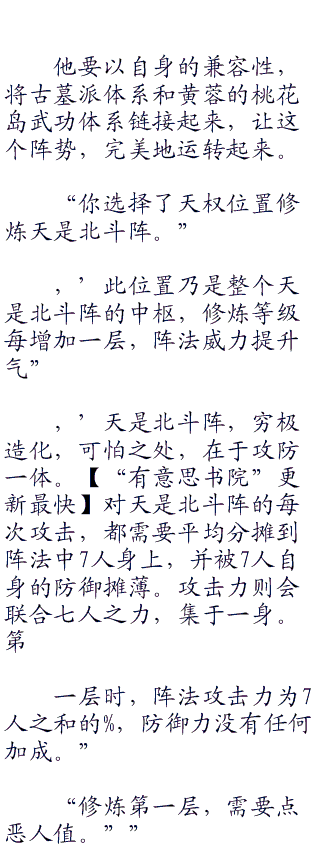 他要以自身的兼容性，
将古墓派体系和黄蓉的桃花
岛武功体系链接起来，让这
个阵势，完美地运转起来。
“你选择了天权位置修
炼天是北斗阵。”
，’此位置乃是整个天
是北斗阵的中枢，修炼等级
每增加一层，阵法威力提升
气”
，’天是北斗阵，穷极
造化，可怕之处，在于攻防
一体。【“有意思书院”更
新最快】对天是北斗阵的每
次攻击，都需要平均分摊到
阵法中7人身上，并被7人自
身的防御摊薄。攻击力则会
联合七人之力，集于一身。
第
一层时，阵法攻击力为7
人之和的%，防御力没有任何
加成。”
“修炼第一层，需要点
恶人值。””